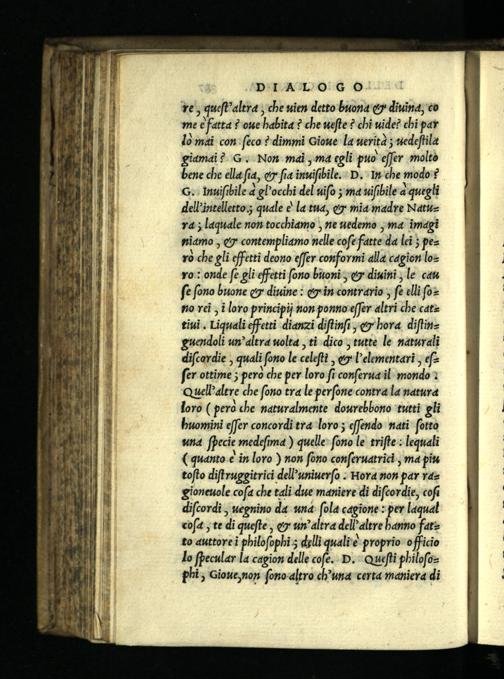 DIALOGO
re, quest'altra, che vien detto buona & divina, co
me è fatta? oue habita? che ueste? chi uide? chi par
lò mai con seco? dimmi Gioue la verità; uedestila
giamai? G. Non mai, ma egli può esser molto
bene che ella sia, & sia inuisibile. D. In che modo?
G. Inuisibile à gl'occhi del uiso; ma uisibile à quegli
dell'intelletto; quale è la tua, & mia madre Natu=
ra; laquale non tocchiamo, ne uedemo, ma imagi
niamo, & contempliamo nelle cose fatte da lei; pe=
rò che gli effetti deono esser conformi alla cagion lo=
ro: onde se gli effetti sono buoni, & diuini, le cau
se sono buone & diuine: & in contrario, se elli so=
no rei, i loro principij non ponno esser altri che cat=
tiui. Liquali effetti dianzi distinsi, & hora distin=
guendoli un'altra volta, ti dico, tutte le naturali
discordie, quali sono le celesti, & l'elementari, es=
ser ottime; però che per loro si conserua il mondo.
Quell'altre che sono tra le persone contra la natura
loro (però che naturalmente dourebbono tutti gli
huomini esser concordi tra loro; essendo nati sotto
una specie medesima) quelle sono le triste: lequali
(quanto è in loro) non sono conseruatrici, ma piu
tosto distruggitrici dell'uniuerso. Hora non par ra=
gioneuole cosa che tali due maniere di discordie, cosi
discordi, uegnino da una sola cagione: per laqual
cosa, te di queste, & un'altra dell'altre hanno fat=
to auttore i philosophi; delli quali è proprio officio
lo specular la cagion delle cose. D. Questi philoso=
phi, Gioue, non sono altro ch'una certa maniera di